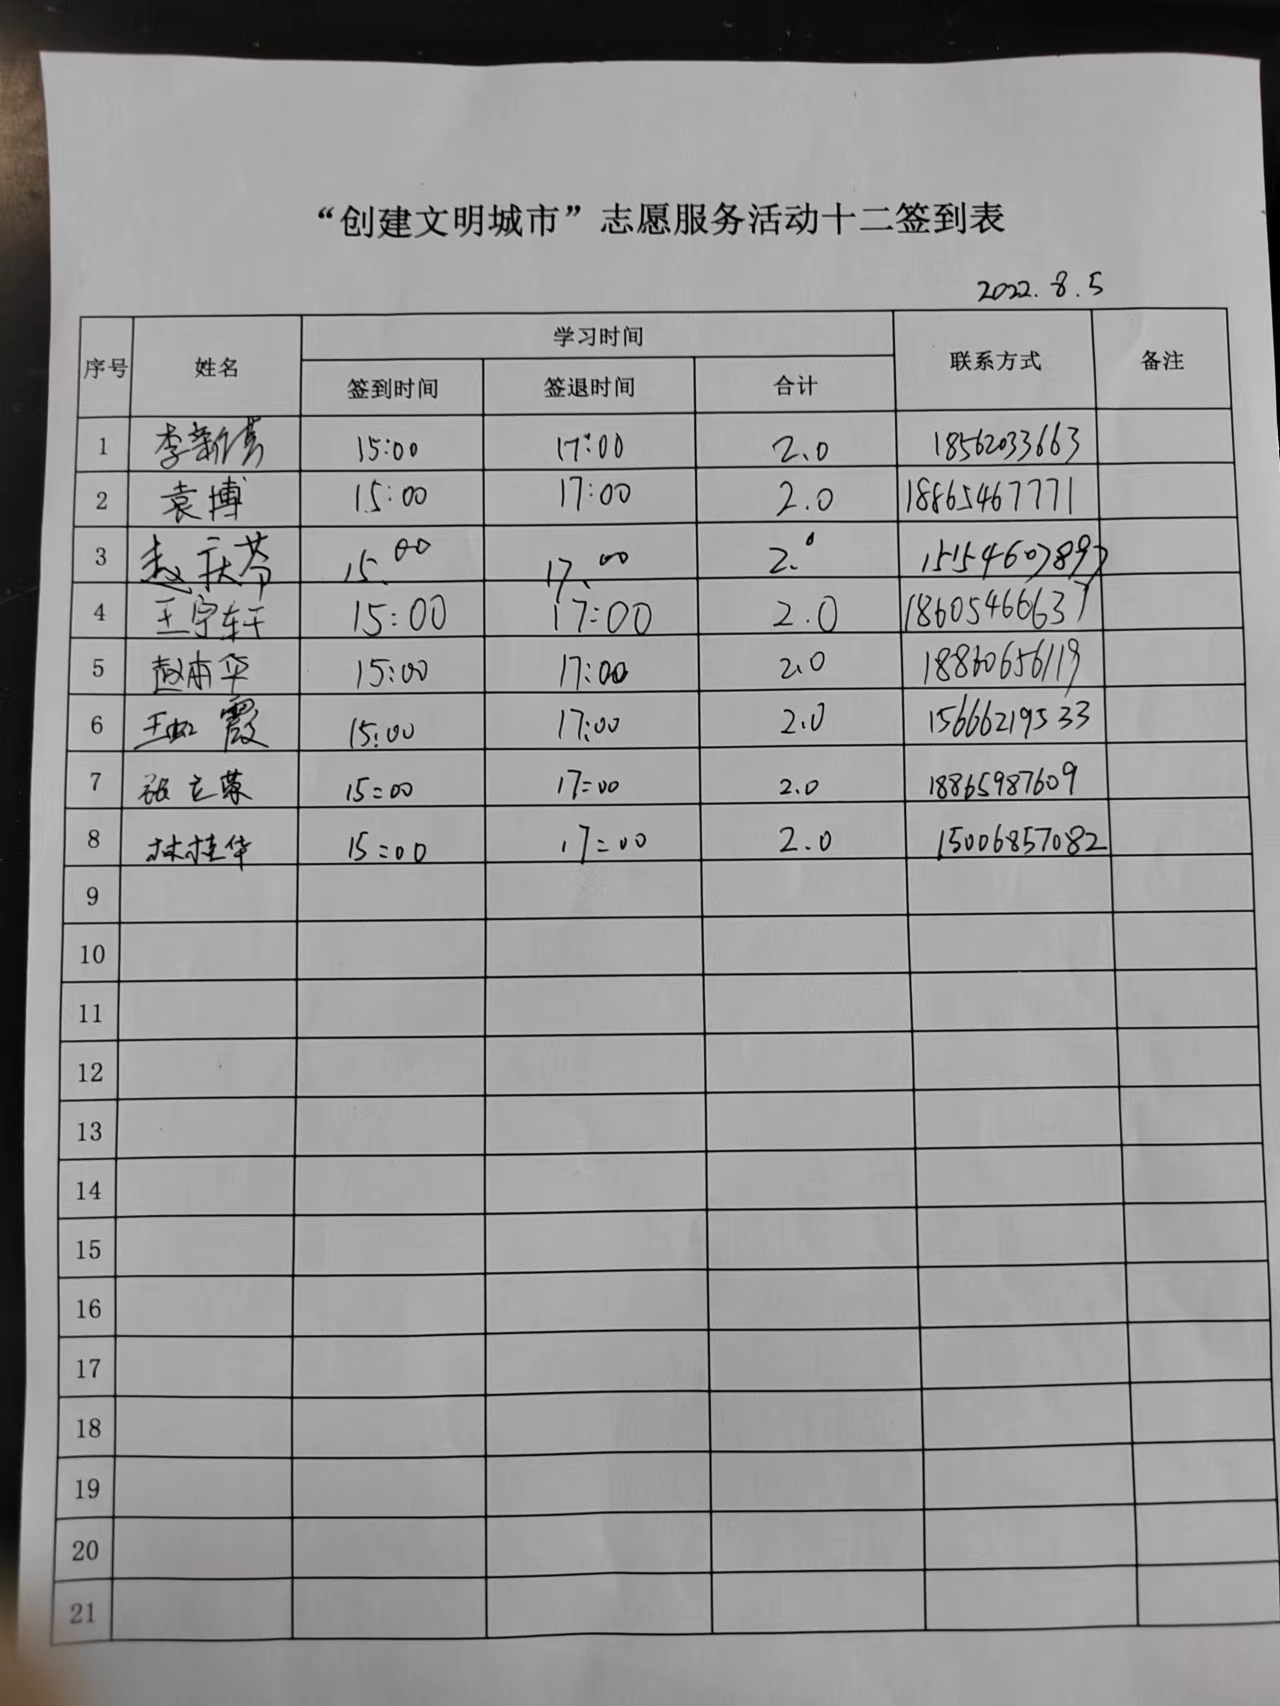 “创建文明城市”志愿服务活动十二签到表
2022.8.5
序号 姓名 学习时间 联系方式 备注
签到时间 签退时间 合计
1 李新 15:00 17:00 2.0 18562033663
2 袁博 15:00 17:00 2.0 18865467771
3 赵庆芬 15.00 17.00 2.0 15154607897
4 王宇轩 15:00 17:00 2.0 18605466637
5 赵南华 15:00 17:00 2.0 18860656119
6 王虹霞 15:00 17:00 2.0 15666219533
7 张立荣 15:00 17:00 2.0 18865987609
8 林桂华 15:00 17:00 2.0 15006857082
9
10
11
12
13
14
15
16
17
18
19
20
21